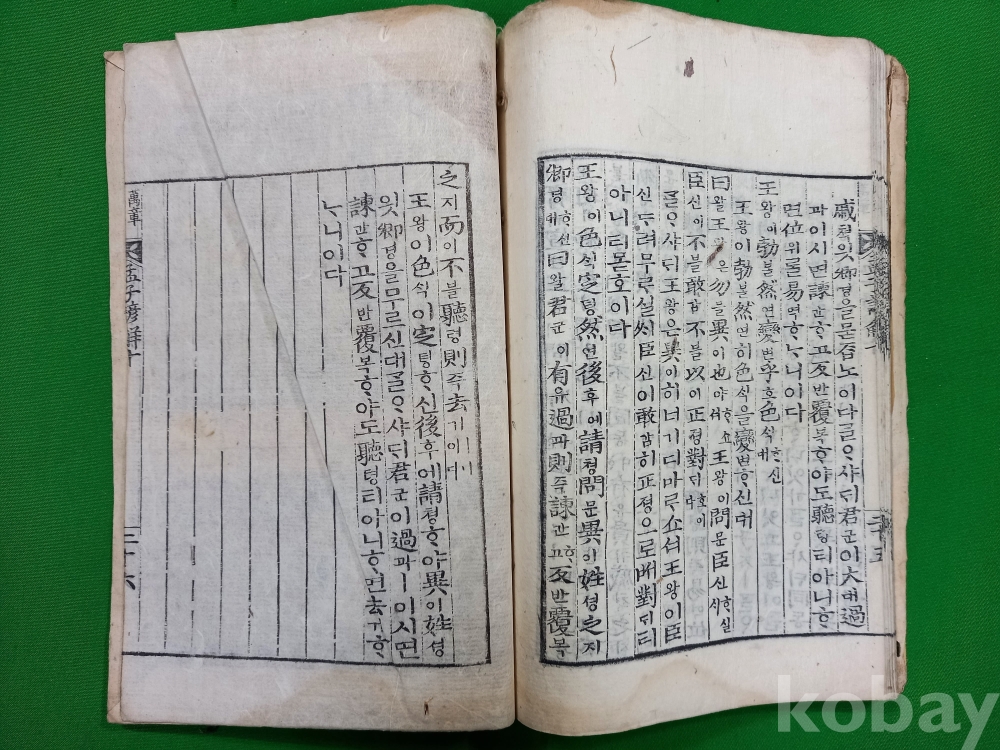 戚쳑잇卿경을묻ᄌᆞᆸ노이다ᄀᆞᆯᄋᆞ샤ᄃᆡ君군이大대過
과이시면諫간ᄒᆞ고反반覆복ᄒᆞ야도聽텽티아니ᄒᆞ
면位위ᄅᆞᆯ易역ᄒᆞᄂᆞ니이다
王왕이勃불然연變변乎호色식ᄒᆞ신대
王왕이勃불然연히色식을變변ᄒᆞ신대
曰왈王왕은勿믈異이也야ᄒᆞ쇼셔王왕이問문臣신ᄒᆞ실ᄉᆡ
臣신이不블敢감不블以이正졍對ᄃᆡ호이다
ᄀᆞᆯᄋᆞ샤ᄃᆡ王왕은異이히너기디마ᄅᆞ쇼셔王왕이臣
신ᄃᆞ려무르실ᄉᆡ臣신이敢감히正졍으로ᄡᅥ對ᄃᆡ티
아니티몯호이다
王왕이色식定뎡然연後후에請쳥問문異이姓셩之지
卿경ᄒᆞ신대曰왈君군이有유過과則즉諫간ᄒᆞ고反반覆복
之지而이不블聽텽則즉去거ㅣ니이다
王왕이色식이定뎡ᄒᆞ신後후에請쳥ᄒᆞ야異이姓셩
잇卿경을무르신대ᄀᆞᆯᄋᆞ샤ᄃᆡ君군이過과ㅣ이시면
諫간ᄒᆞ고反반覆복ᄒᆞ야도聽텽티아니ᄒᆞ면去거ᄒᆞ
ᄂᆞ니이다
萬章
孟子諺解十
三十六
三十五
kobay